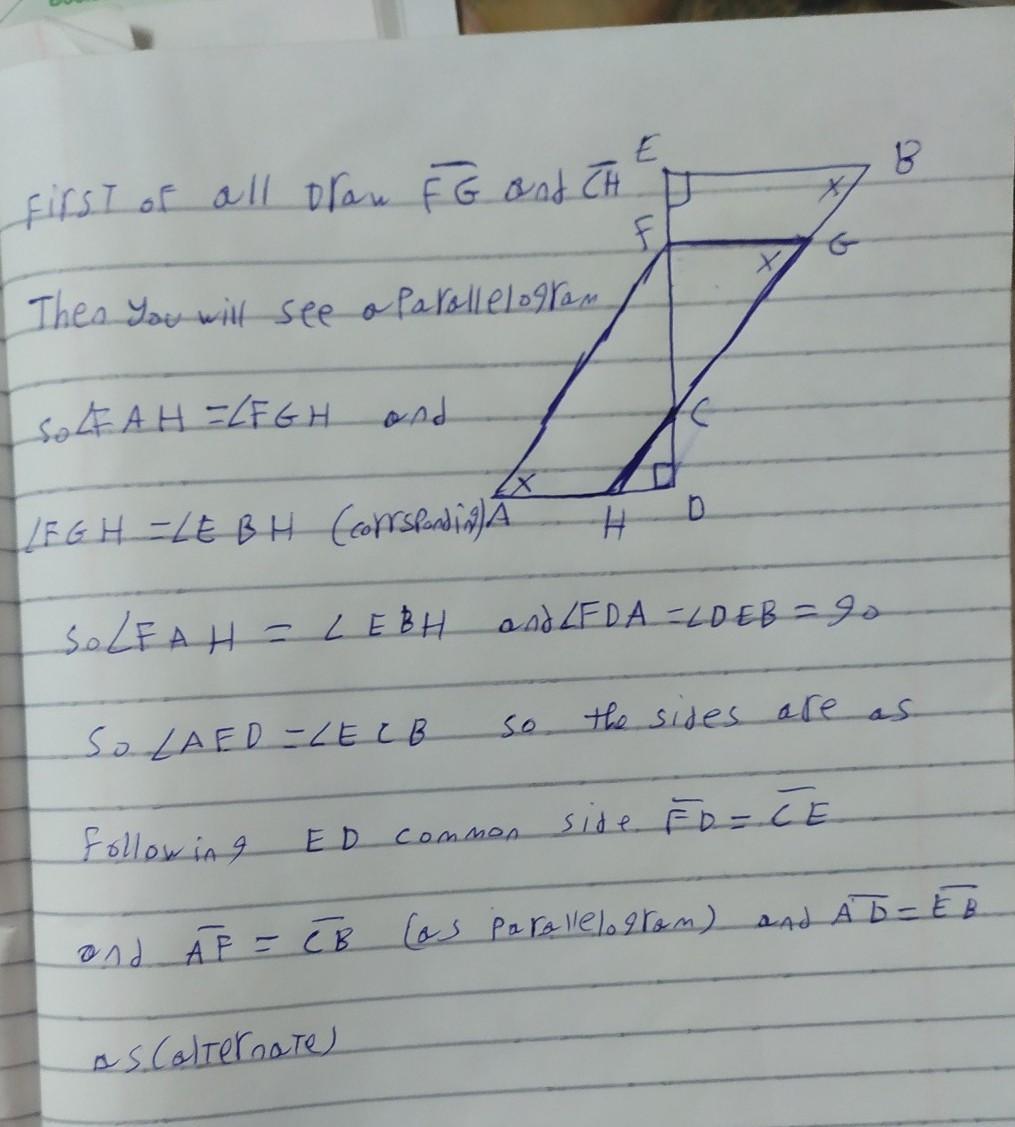 First of all Draw FG and CH
Then you will see a Parallelogram
So ∠FAH = ∠FGH and
∠FGH = ∠EBH (corrsponding)
So ∠FAH = ∠EBH and ∠FDA = ∠DEB = 90
So ∠AED = ∠ECB so the sides are as
Following ED common side FD = CE
and AF = CB (as parallelogram) and AD = EB
as (alternate)
E
B
x
F
G
x
C
x
A
H
D